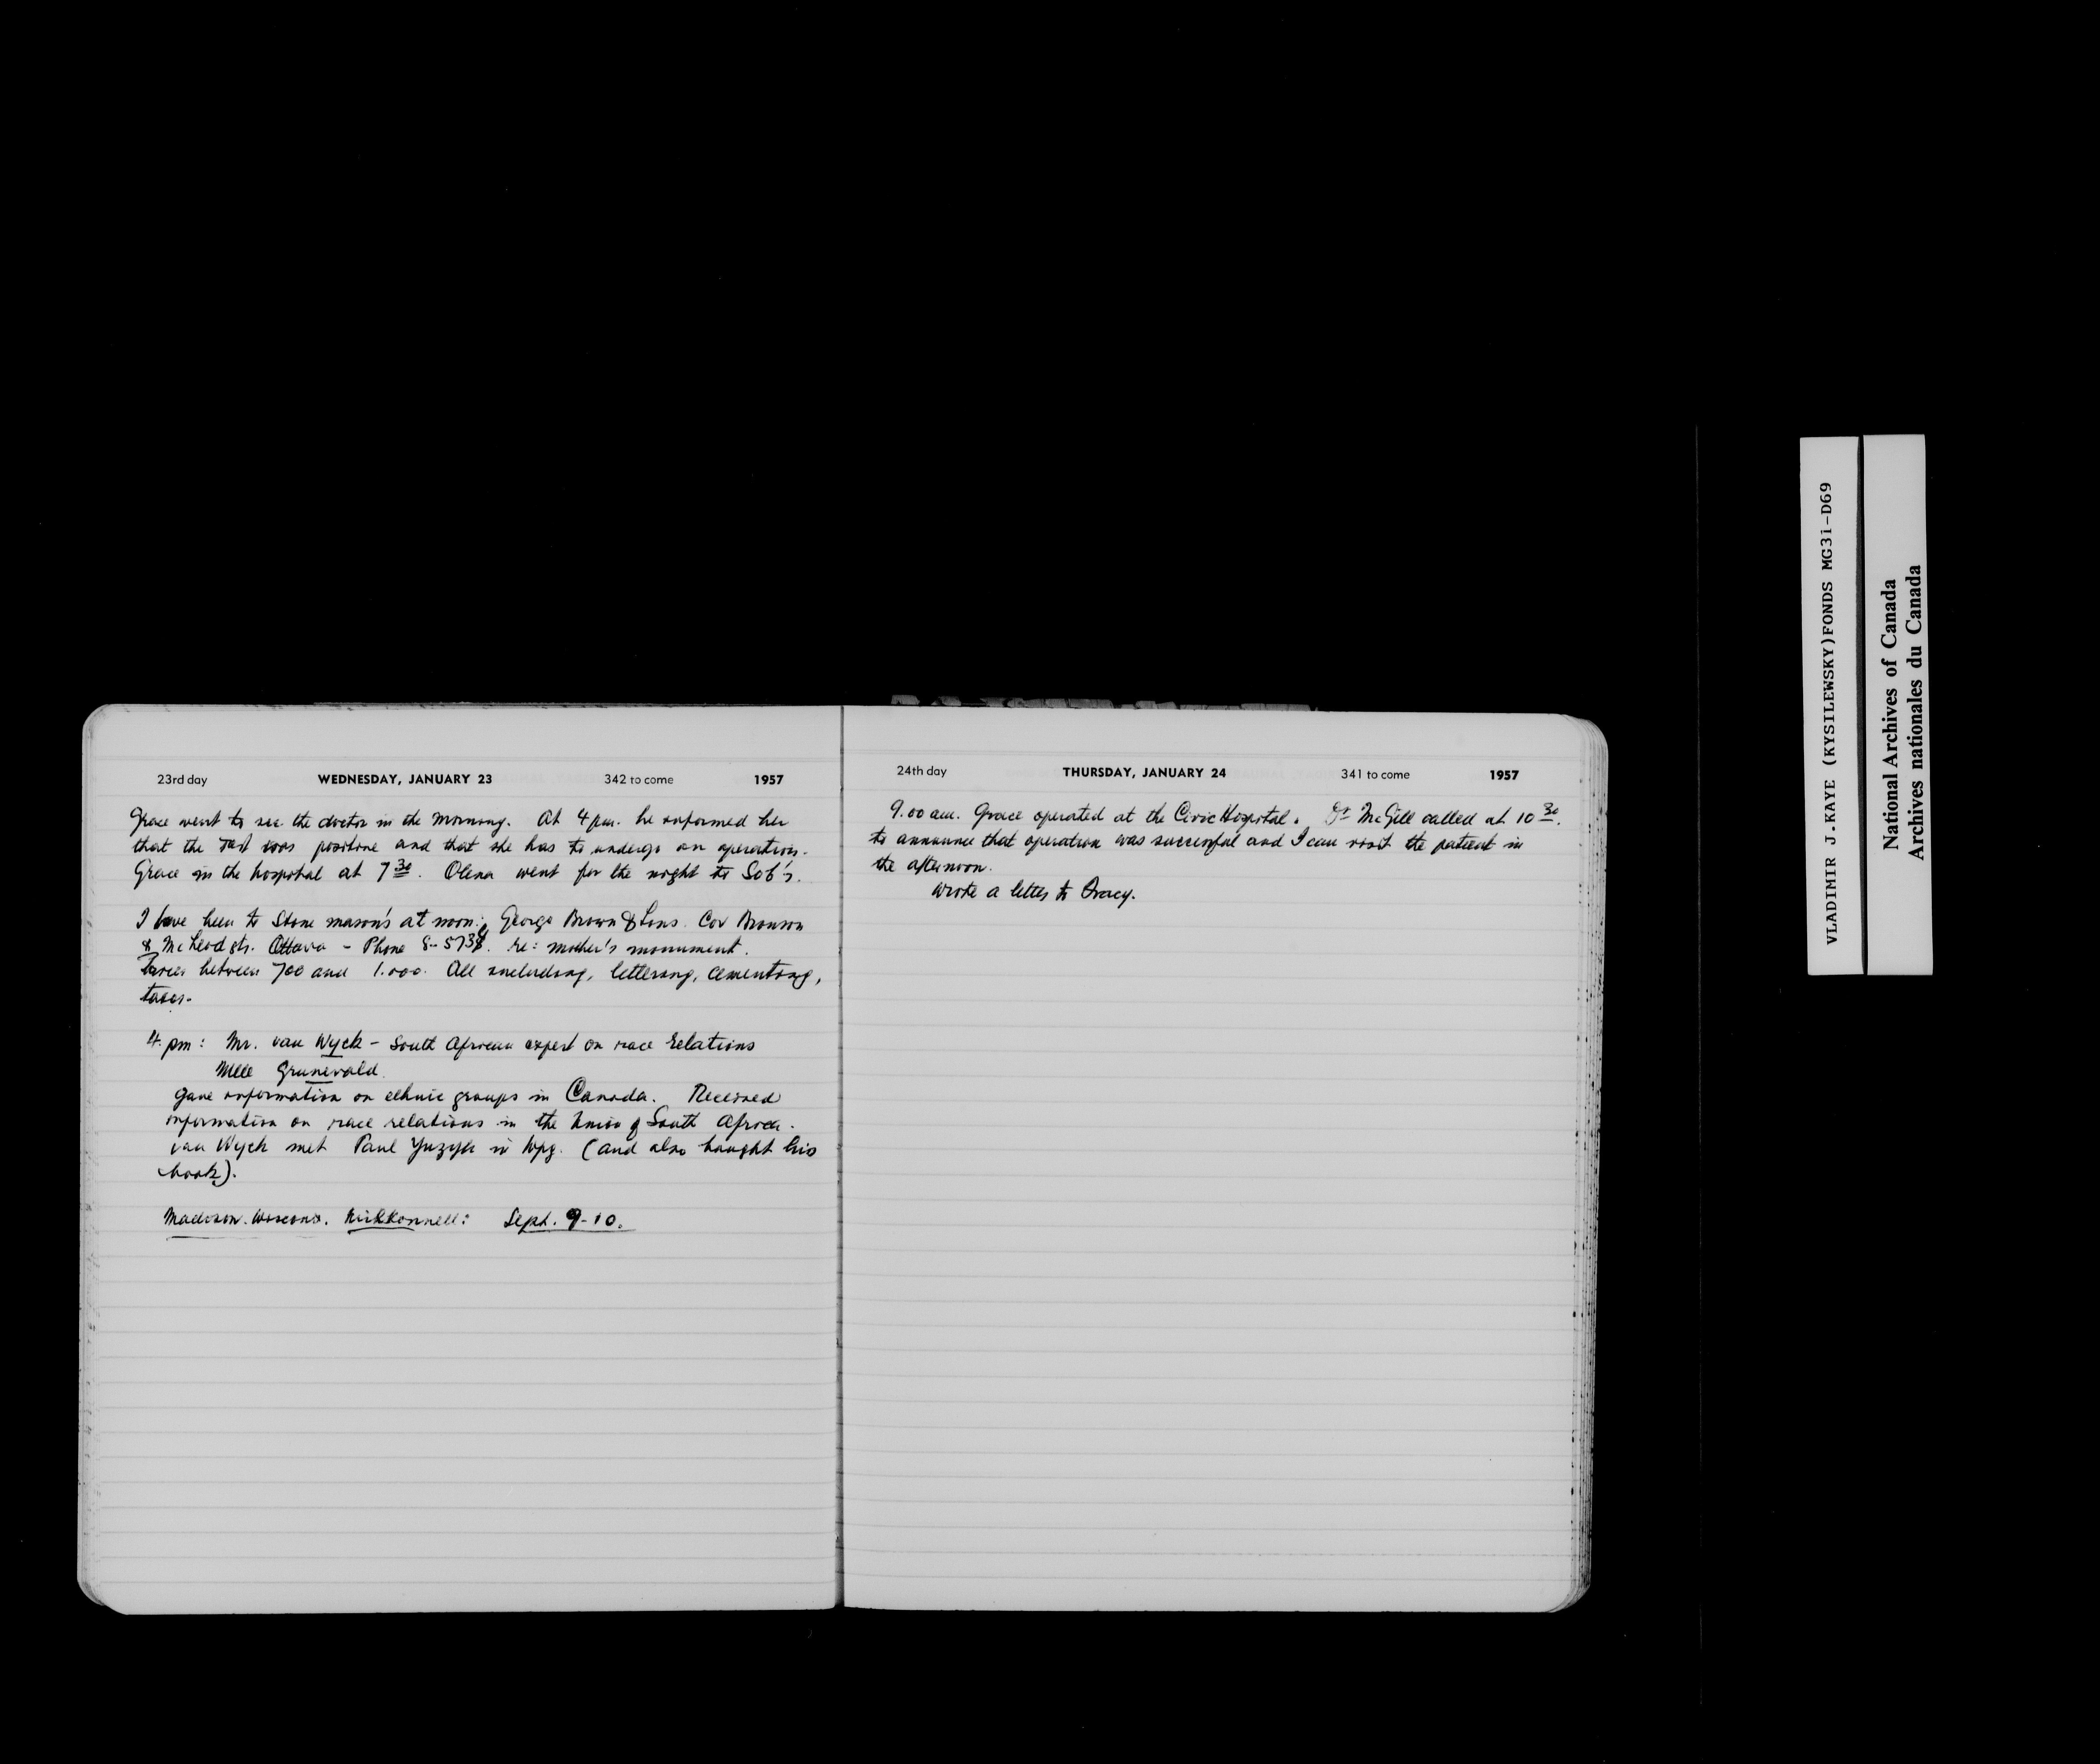 23rd day WEDNESDAY, JANUARY 23 342 to come 1957
Grace went to see the doctor in the morning. At 4 pm. he informed her
that the test was positive and that she has to undergo an operation.
Grace in the hospital at 7 30. Olena went for the night to Sob's.
I have been to Stone mason's at noon: George Brown & Sons. Cor Bronson
& McLeod sts. Ottawa - Phone 8-5738. re: mother's monument.
Prices between 700 and 1.000. All including, lettering, cementing,
taxes.
4. pm: Mr. van Wyck - South African expert on race relations
Mlle Grunewald.
gave information on ethnic groups in Canada. Received
information on race relations in the Union of South Africa.
van Wyck met Paul Yuzyk in Wpg. (and also bought his
book).
Madison. Wisconsin. Sept. 9-10.
24th day THURSDAY, JANUARY 24 341 to come 1957
9.00 am. Grace operated at the Civic Hospital. Dr McGill called at 10 30.
to announce that operation was successful and I can visit the patient in
the afternoon.
Wrote a letter to
VLADIMIR J.KAYE (KYSILEWSKY)FONDS MG31-D69
National Archives of Canada
Archives nationales du Canada